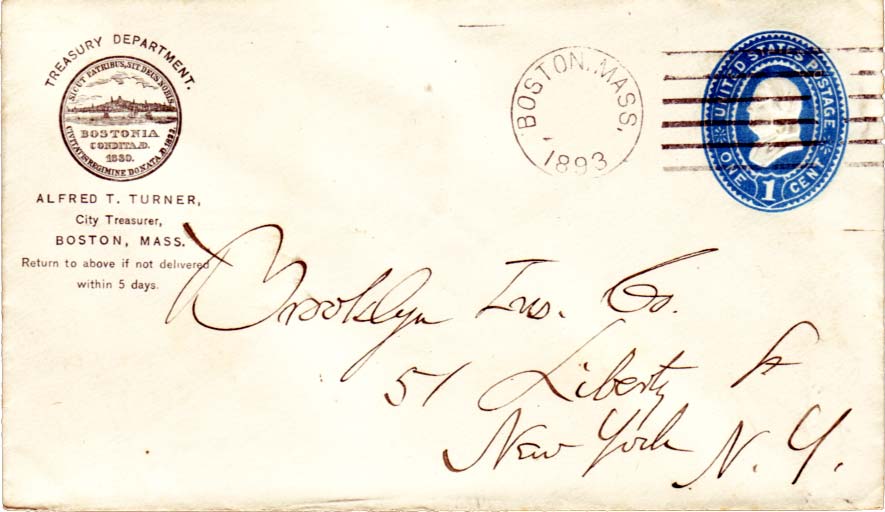 TREASURY DEPARTMENT.
SICUT PATRIBUS, SIT DEUS NOBIS
BOSTONIA
CONDITA A.D.
1630.
CIVITATIS REGIMINE DONATA A.D. 1822.
ALFRED T. TURNER,
City Treasurer,
BOSTON, MASS.
Return to above if not delivered
within 5 days.
BOSTON, MASS.
1893
UNITED STATES POSTAGE
ONE 1 CENT
Brooklyn Ins. Co.
51 Liberty St
New York N. Y.